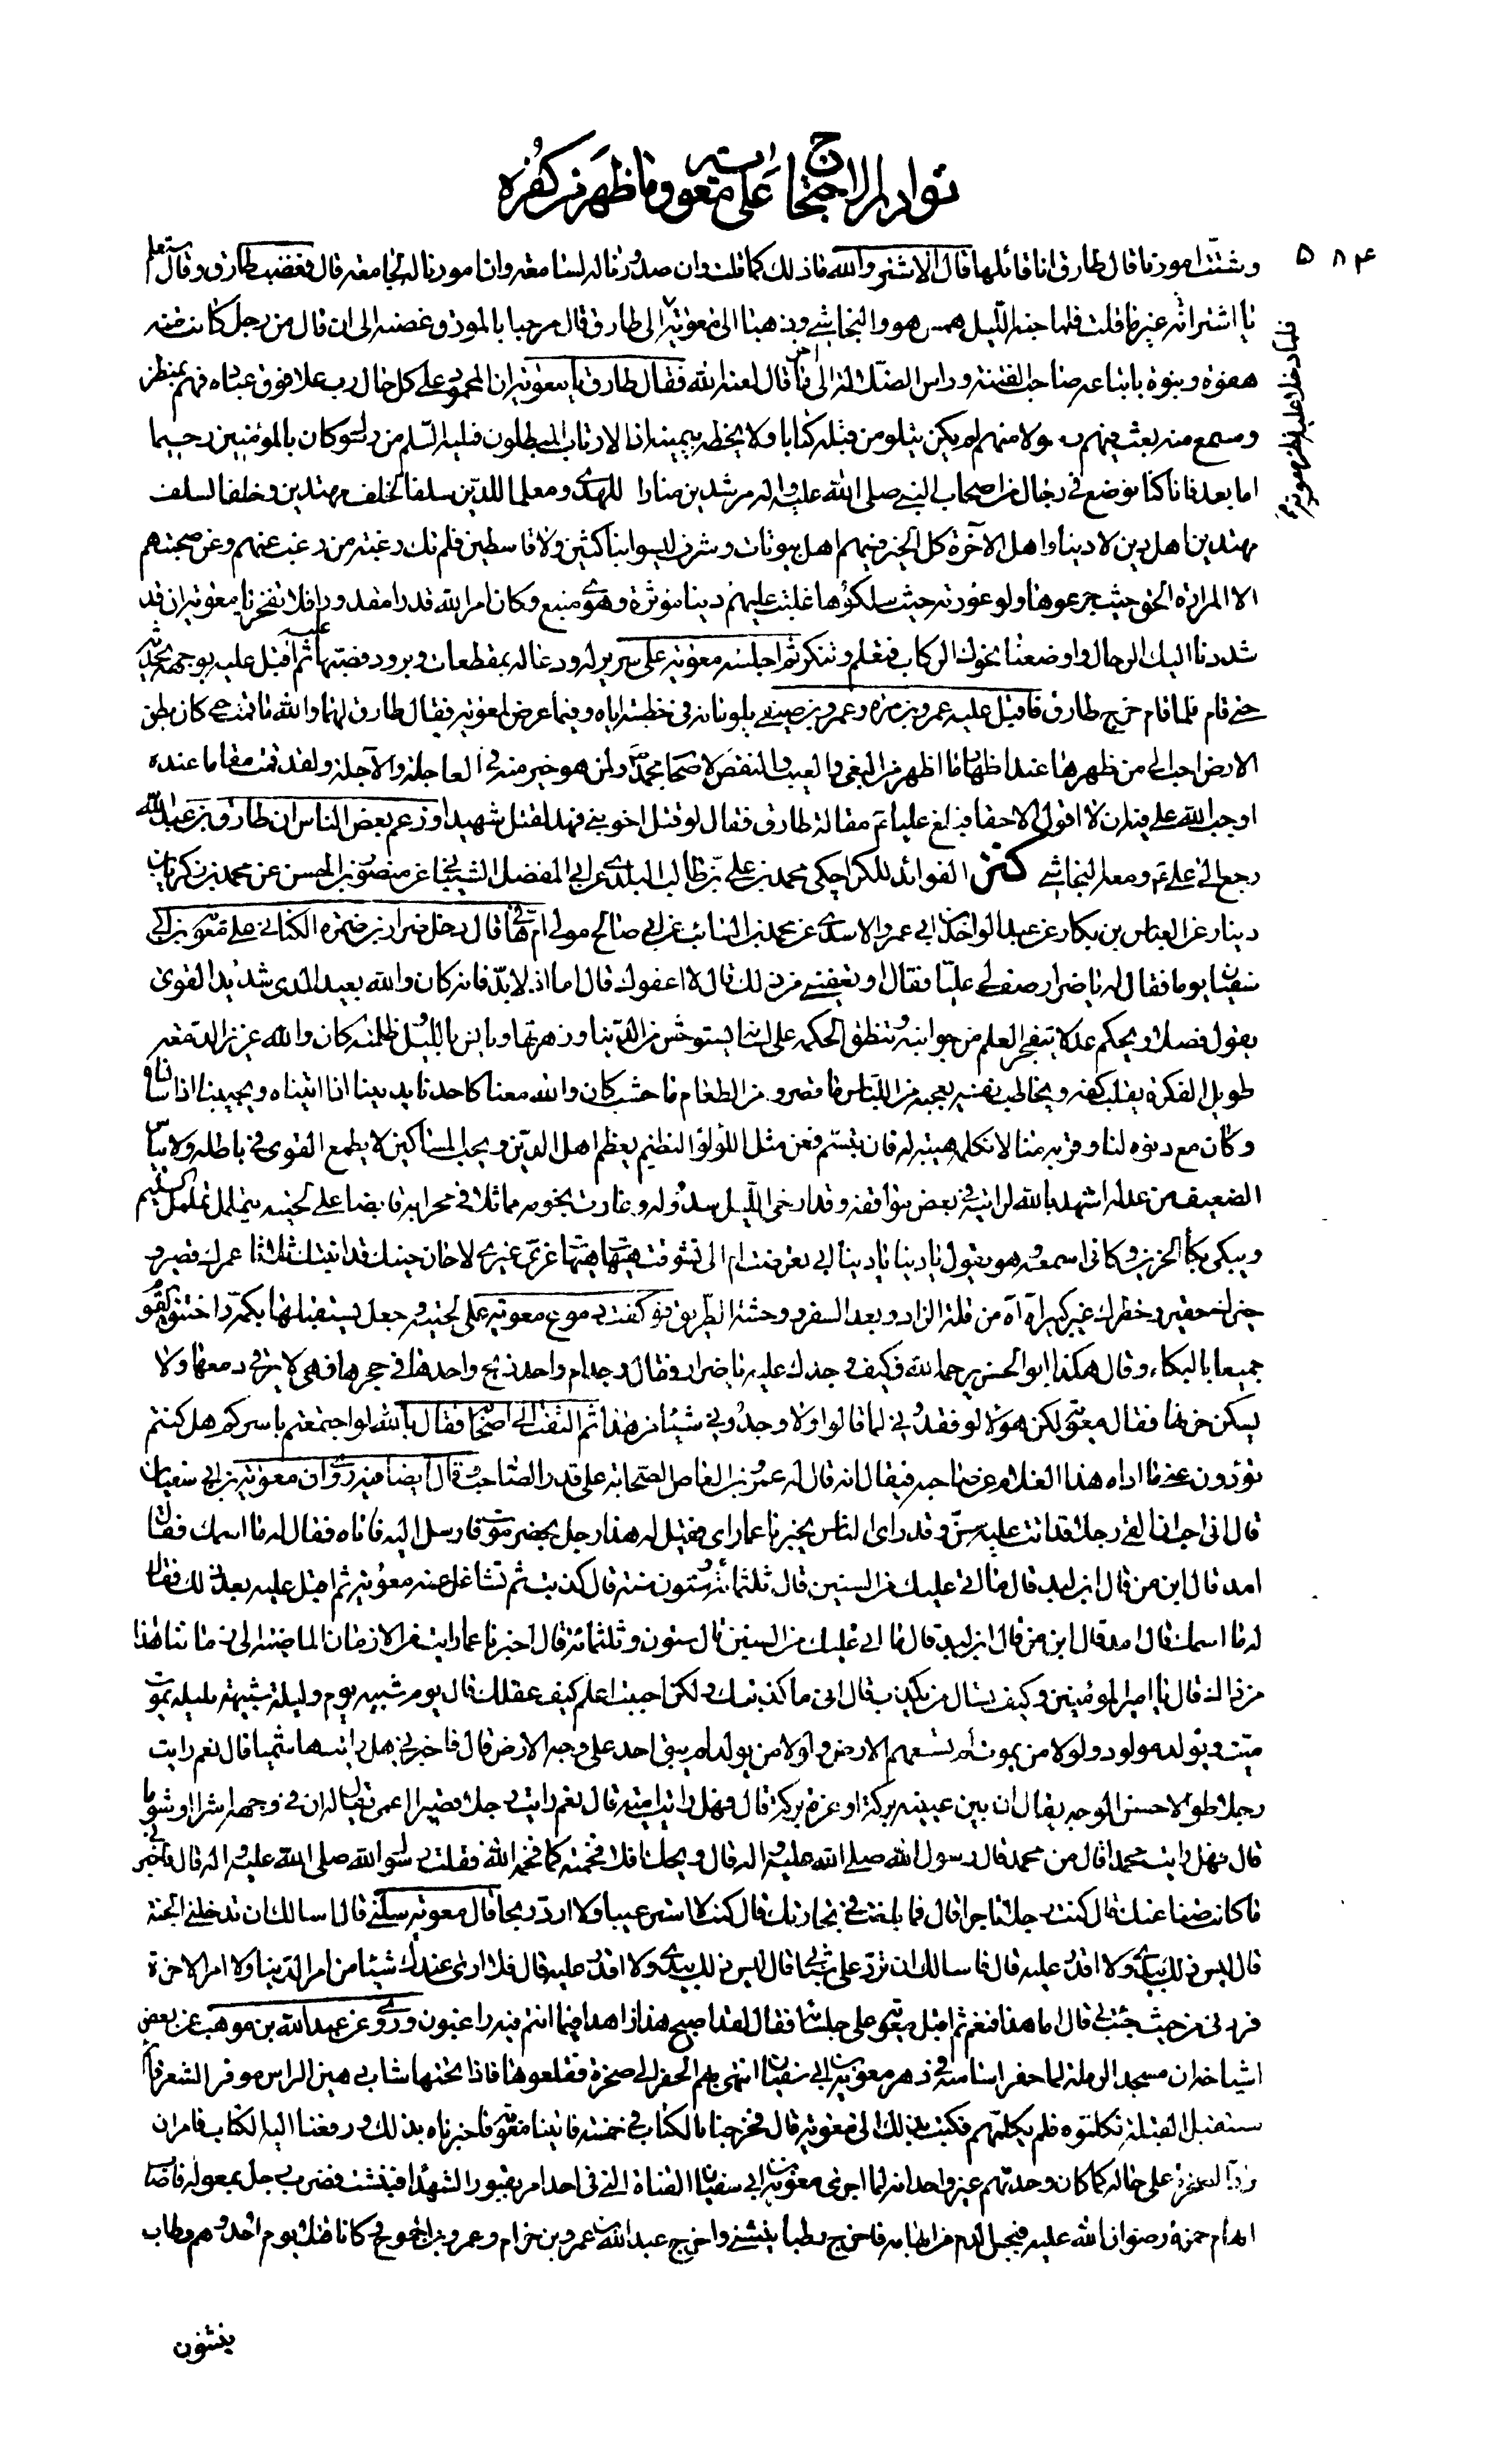 نوادر الاحتجاج على معوية وما ظهر من كفره
۵۸۴
وشتت امورنا قال طارق انا قائلها قال الاشتر والله ما ذلك كما قلت وان صدورنا له لسامعة وان امورنا له لجامعة قال فغضب طارق وقال ستعلم
يا اشتر انه غير ما قلت فلما جنه الليل همس هو والنجاشي وذهبا الى معوية الى طارق قال مرحبا بالمورق غصنه الى ان قال من رجل كانت منه
فلما دخلا عليه نظر معوية
هفوة ونبوة باتباعه صاحب الفتنة وراس الضلالة الى اخر ما قال لعنه الله فقال طارق يا معوية ان المحمود على كل حال رب علا فوق عباده فهم بمنظر
ومسمع منه بعث فيهم رسولا منهم لم يكن يتلو من قبله كتابا ولا يخطه بيمينه اذا لارتاب المبطلون فعليه السلم من رسول كان بالمؤمنين رحيما
اما بعد فانا كنا نوضع في رجال من اصحاب النبي صلى الله عليه واله مرشدين منارا للهدى ومعلما للدين سلفا لخلف مهتدين وخلفا لسلف
مهتدين اهل دين لا دنيا واهل الآخرة كل الخير فيهم اهل بيوتات وشرف ليسوا بناكثين ولا قاسطين فلم تك رغبة من رغب عنهم وعن صحبتهم
الا لمرارة الحق حيث جرعوها ولوعورته حيث سلكوها غلبت عليهم دنيا مؤثرة وهوى متبع وكان امر الله قدرا مقدورا فلا تفخر يا معوية ان قد
شددنا اليك الرحال واوضعنا نحوك الركاب فتعلم وتنكر ثم اجلسه معوية على سريره ودعا له بمقطعات وبرود فصبها عليه ثم اقبل عليه بوجهه يحدثه
حتى قام فلما قام خرج طارق فاقبل عليه عمرو بن مرة وعمرو بن صيفي يلومانه في خطبته اياه وفيما عرض لمعوية فقال طارق لهما والله ما قمت حتى كان بطن
الارض احب الي من ظهرها عند اظهاره ما اظهر من البغي والعيب والنقص لاصحاب محمد ص ولمن هو خير منه في العاجلة والآجلة ولقد قمت مقاما عنده
اوجب الله علي فيه ان لا اقول الا حقا فبلغ عليا ع مقالة طارق فقال لو قتل اخو بني نهد لقتل شهيدا وزعم بعض الناس ان طارق بن عبد الله
رجع الى علي ع ومعه النجاشي كنز الفوائد للكراجكي محمد بن علي بن طالب البلدي عن ابي المفضل الشيباني عن منصور بن الحسن عن محمد بن زكريا بن
دينار عن العباس بن بكار عن عبد الواحد بن ابي عمرو الاسدي عن محمد بن السائب عن ابي صالح مولى ام هاني قال دخل ضرار بن ضمرة الكناني على معوية بن ابي
سفيان يوما فقال له يا ضرار صف لي عليا فقال او تعفيني من ذلك قال لا اعفوك قال اما اذ لا بد فانه كان والله بعيد المدى شديد القوى
يقول فصلا ويحكم عدلا يتفجر العلم من جوانبه وتنطق الحكمة على لسانه يستوحش من الدنيا وزهرتها ويانس بالليل وظلمته كان والله غزير الدمعة
طويل الفكرة يقلب كفه ويخاطب نفسه يعجبه من اللباس ما قصر ومن الطعام ما خشب كان والله معنا كاحدنا يدنينا اذا اتيناه ويجيبنا اذا سالناه
وكان مع دنوه لنا وقربه منا لا نكلمه هيبة له فان تبسم فعن مثل اللؤلؤ النظيم يعظم اهل الدين ويحب المساكين لا يطمع القوي في باطله ولا يياس
الضعيف من عدله اشهد بالله لرايته في بعض مواقفه وقد ارخى الليل سدوله وغارت نجومه مماثلا في محرابه قابضا على لحيته يتململ تململ السليم
ويبكي بكاء الحزين وكاني اسمعه وهو يقول يا دنيا يا دنيا ابي تعرضت ام الي تشوقت هيهات هيهات غري غيري لا حان حينك قد ابنتك ثلاثا عمرك قصير و
خيرك حقير وخطرك غير كبير آه آه من قلة الزاد وبعد السفر ووحشة الطريق فوكفت دموع معوية على لحيته وجعل يستقبلها بكمه واختنق القوم
جميعا بالبكاء وقال هكذا ابو الحسن يرحمه الله فكيف وجدك عليه يا ضرار فقال وجد ام واحد ذبح واحدها في حجرها فهي لا يرقى دمعها ولا
يسكن حزنها فقال معوية لكن هؤلاء لو فقدوني لما قالوا ولا وجدوا بي شيئا من هذا ثم التفت الى اصحابه فقال بالله لو اجتمعتم باسركم هل كنتم
تؤدون عني ما اداه هذا الغلام عن صاحبه فيقال انه قال له عمرو بن العاص الصحابة على قدر الصاحب وقال ايضا فيه روي ان معوية بن ابي سفيان
قال اني احب ان القى رجلا قد اتت عليه سن وقد راى الناس يخبرنا عما راى فقيل له هذا رجل بحضرموت فارسل اليه فاتاه فقال له ما اسمك فقال
امد قال ابن من قال ابن لبد قال ما اتى عليك من السنين قال ثلثمائة وستون سنة قال كذبت ثم تشاغل عنه معوية ثم اقبل عليه بعد ذلك فقال
له ما اسمك قال امد قال ابن من قال ابن لبد قال ما اتى عليك من السنين قال ستون وثلثمائة قال اخبرنا عما رايت من الازمان الماضية الى زماننا هذا
من ذاك قال يا امير المؤمنين وكيف تسال من يكذب قال اني ما كذبتك ولكن احببت اعلم كيف عقلك قال يوم شبيه بيوم وليلة شبيهة بليلة يموت
ميت ويولد مولود ولولا من يموت لم تسعهم الارض ولولا من يولد لم يبق احد على وجه الارض قال فاخبرني هل رايت هاشميا قال نعم رايت
رجلا طوالا حسن الوجه يقال ان بين عينيه بركة او غرة بركة قال فهل رايت امية قال نعم رايت رجلا قصيرا اعمى يقال ان في وجهه لشرا او شوما
قال فهل رايت محمدا قال من محمد قال رسول الله صلى الله عليه واله قال ويحك افلا فخمته كما فخمه الله فقلت رسول الله صلى الله عليه واله قال فاخبرني
ما كانت صناعتك قال كنت رجلا تاجرا قال فما بلغت في تجارتك قال كنت لا استر عيبا ولا ارد ربحا قال معوية سلني قال اسالك ان تدخلني الجنة
قال ليس ذلك بيدي ولا اقدر عليه قال فاسالك ان ترد علي شبابي قال ليس ذلك بيدي ولا اقدر عليه قال فلا ارى عندك شيئا من امر الدنيا ولا امر الاخرة
فردني من حيث جئت بي قال اما هذا فنعم ثم اقبل معوية على جلسائه فقال لقد اصبح هذا زاهدا فيما انتم فيه راغبون وروي عن عبد الله بن موهب عن بعض
اشياخه ان مسجد الرملة لما حفر اساسه في دهر معوية بن ابي سفيان انتهى بهم الحفر الى صخرة فقلعوها فاذا تحتها شاب دهين الراس موفر الشعر قائم
مستقبل القبلة فكلموه فلم يكلمهم فكتب بذلك الى معوية قال فخرجنا بالكتاب في خمسة فاتينا معوية فاخبرناه بذلك ورفعنا اليه الكتاب فامر ان
يرد الصخرة على حاله كما كان وحدثهم غير واحد انه لما اجرى معوية بن ابي سفيان القناة التي في احد امر بقبور الشهداء فنبشت فضرب رجل بمعوله فاصاب
ابهام حمزة رضوان الله عليه فبجس الدم من ابهامه فاخرج رطبا ينثني واخرج عبد الله بن عمرو بن حزام وعمرو بن الجموح كانا قتلا يوم احد وهم رطاب
ينثنون